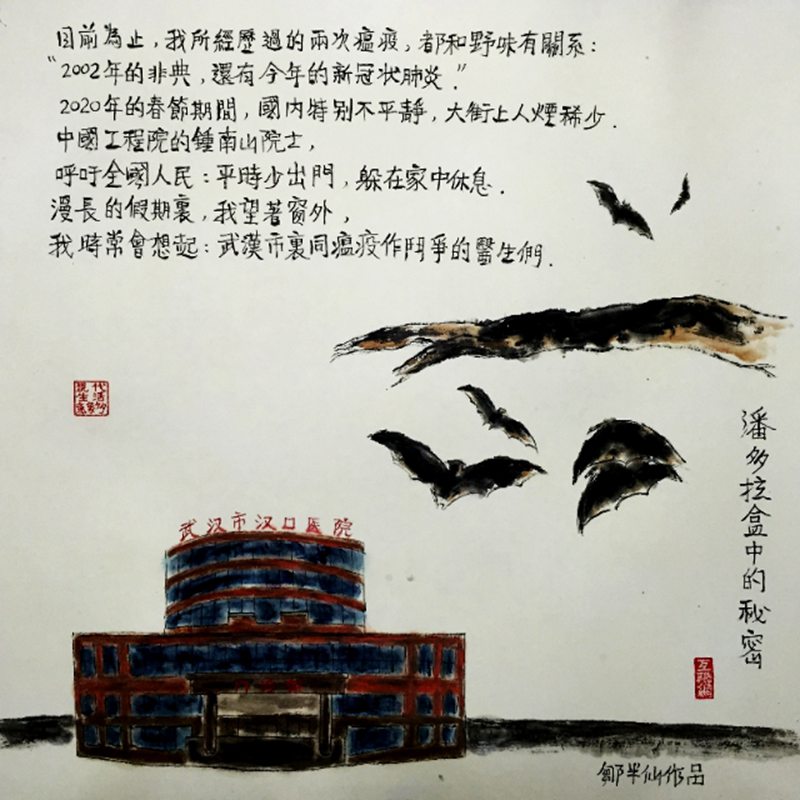 目前為止，我所經歷過的兩次瘟疫，都和野味有關系：
“2002年的非典，還有今年的新冠状肺炎．”
2020年的春節期間，國内特别不平靜，大街上人煙稀少．
中國工程院的鍾南山院士，
呼吁全國人民：平時少出門，躲在家中休息．
漫長的假期裏，我望著窗外，
我時常會想起：武漢市裏同瘟疫作鬥爭的醫生們．
潘多拉盒中的秘密
武汉市汉口医院
鄒半仙作品